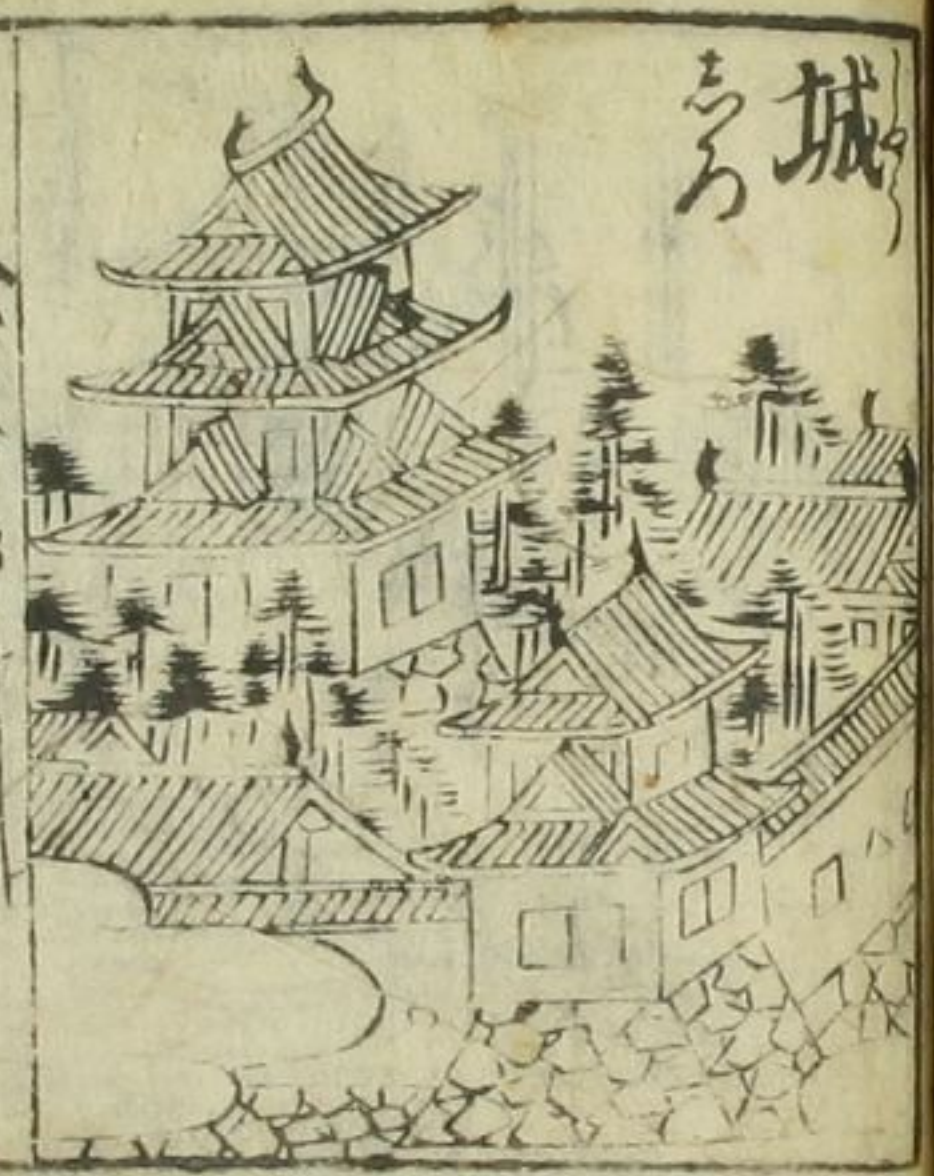 城
じやう
しろ